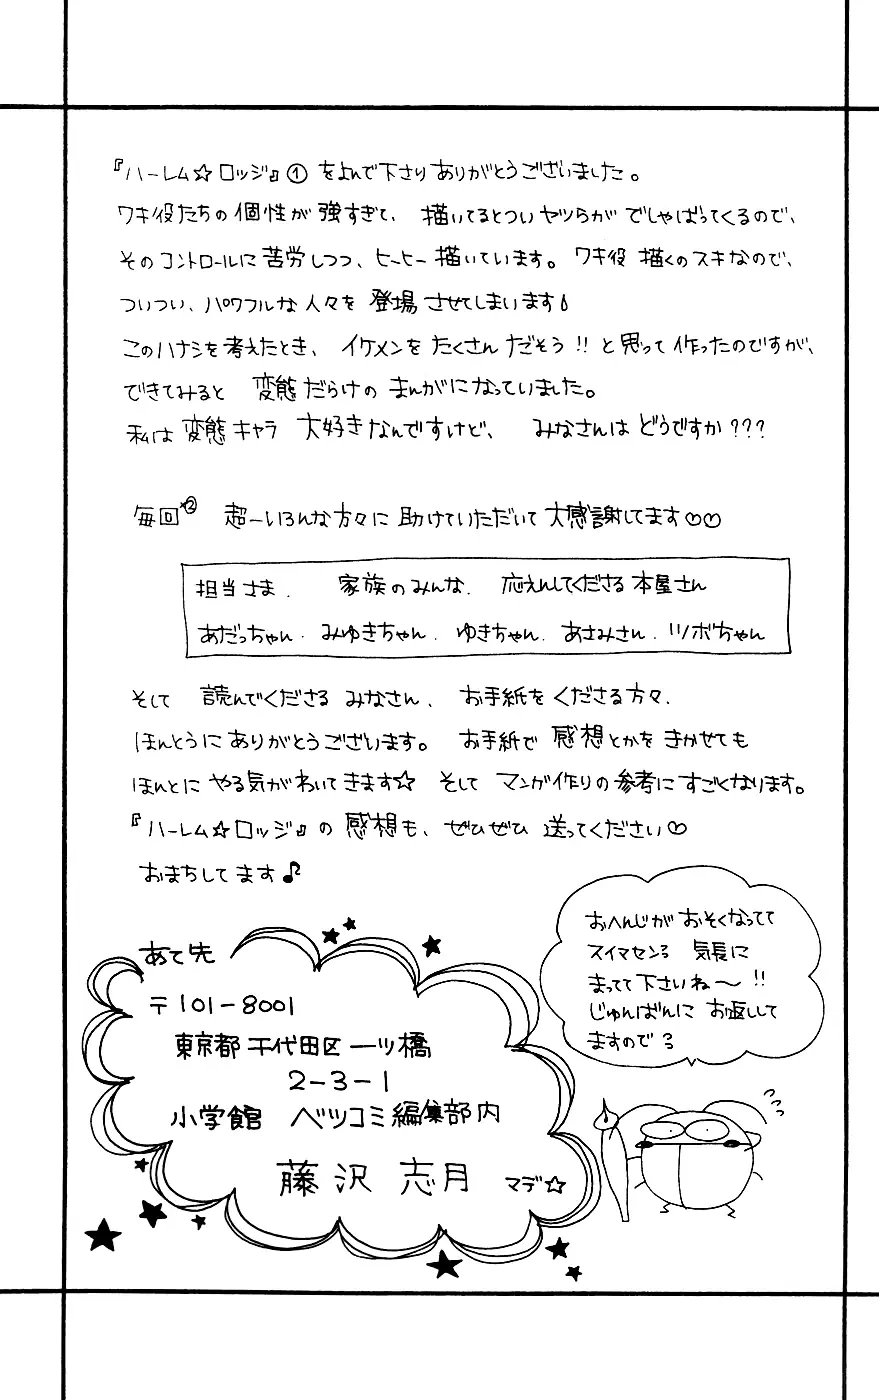 『ハーレム☆ロッジ』① をよんで下さりありがとうございました。
ワキ役たちの個性が強すぎて、描いてるとついヤツらがでしゃばってくるので、
そのコントロールに苦労しつつ、ヒーヒー描いています。ワキ役描くのスキなので、
ついつい、パワフルな人々を登場させてしまいます
このハナシを考えたとき、イケメンをたくさんだそう!!と思って作ったのですが、
できてみると変態だらけのまんがになっていました。
私は変態キャラ大好きなんですけど、みなさんはどうですか???
毎回 超ーいろんな方々に助けていただいて大感謝してます♡♡
担当さま. 家族のみんな. 応えんしてくださる本屋さん
あだっちゃん. みゆきちゃん. ゆきちゃん. あさみさん. ツボちゃん
そして 読んでくださるみなさん、お手紙をくださる方々、
ほんとうにありがとうございます。お手紙で感想とかをきかせても
ほんとにやる気がわいてきます☆ そしてマンガ作りの参考にすごくなります。
『ハーレム☆ロッジ』の感想も、ぜひぜひ送ってください♡
おまちしてます♪
おへんじがおそくなってて
スイマセンる 気長に
まってて下さいね〜!!
じゅんばんにお返しして
ますのでる
あて先
〒101-8001
東京都千代田区一ツ橋
2-3-1
小学館 ベツコミ編集部内
藤沢志月 マデ☆